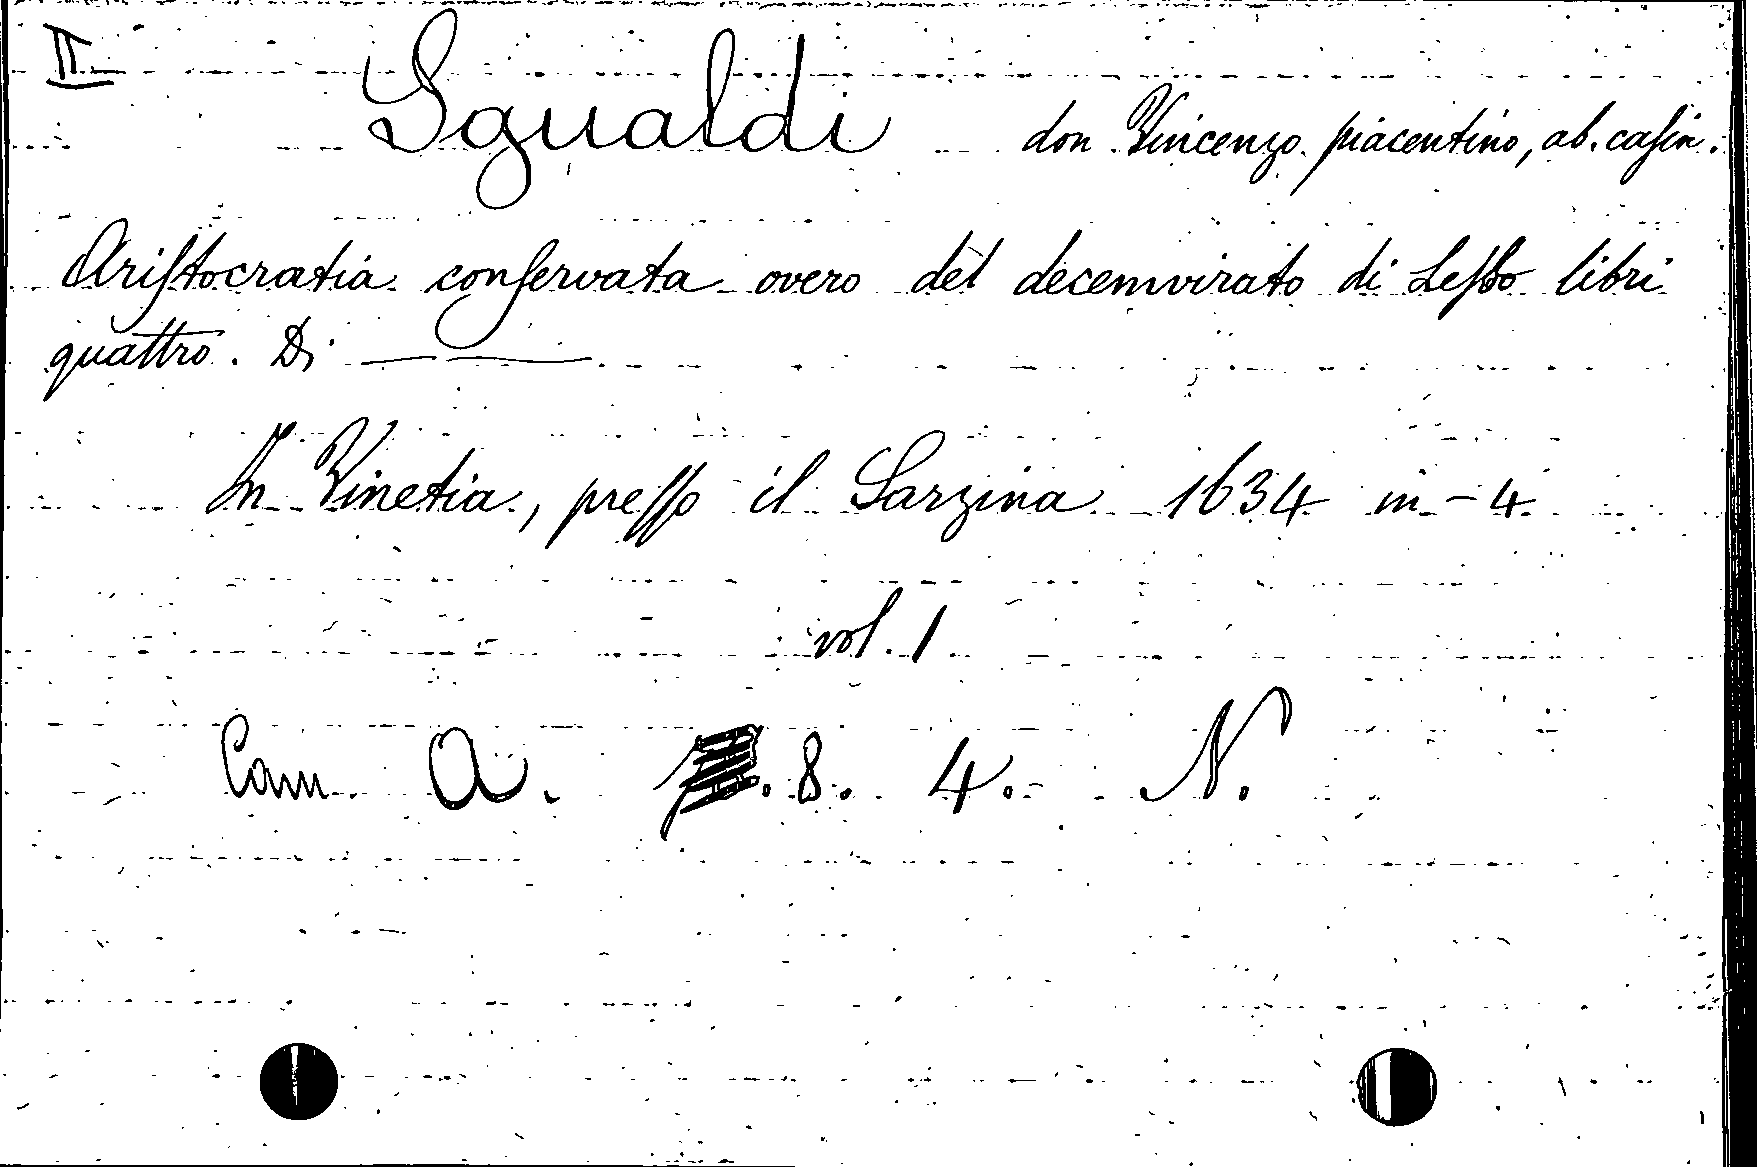 II
Sgualdi don Vincenzo piacentino, ab. caſin.
Ariſtocratia conſervata overo del decemvirato di Leſbo libri
quattro. Di ———
In Vinetia, preſſo il Sarzina 1634 in-4
vol. 1
Cam A. 8. 4. N.